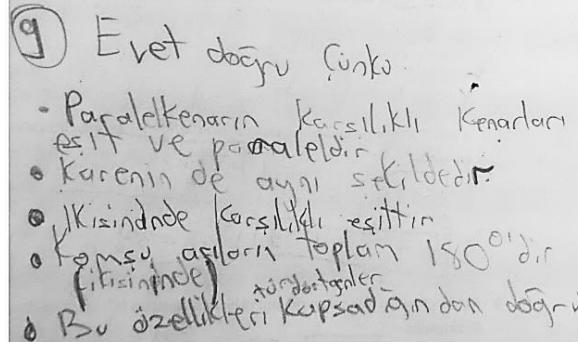 9) Evet doğru Çünkü
- Paralelkenarın Karşılıklı Kenarları
eşit ve paraleldir
• Karenin de aynı şekildedir
• İkisindnde Karşılıklı eşittir
• Komşu açıların toplam 180°'dir
(ikisininde)
• Bu özellikleri Kapsadığından doğru